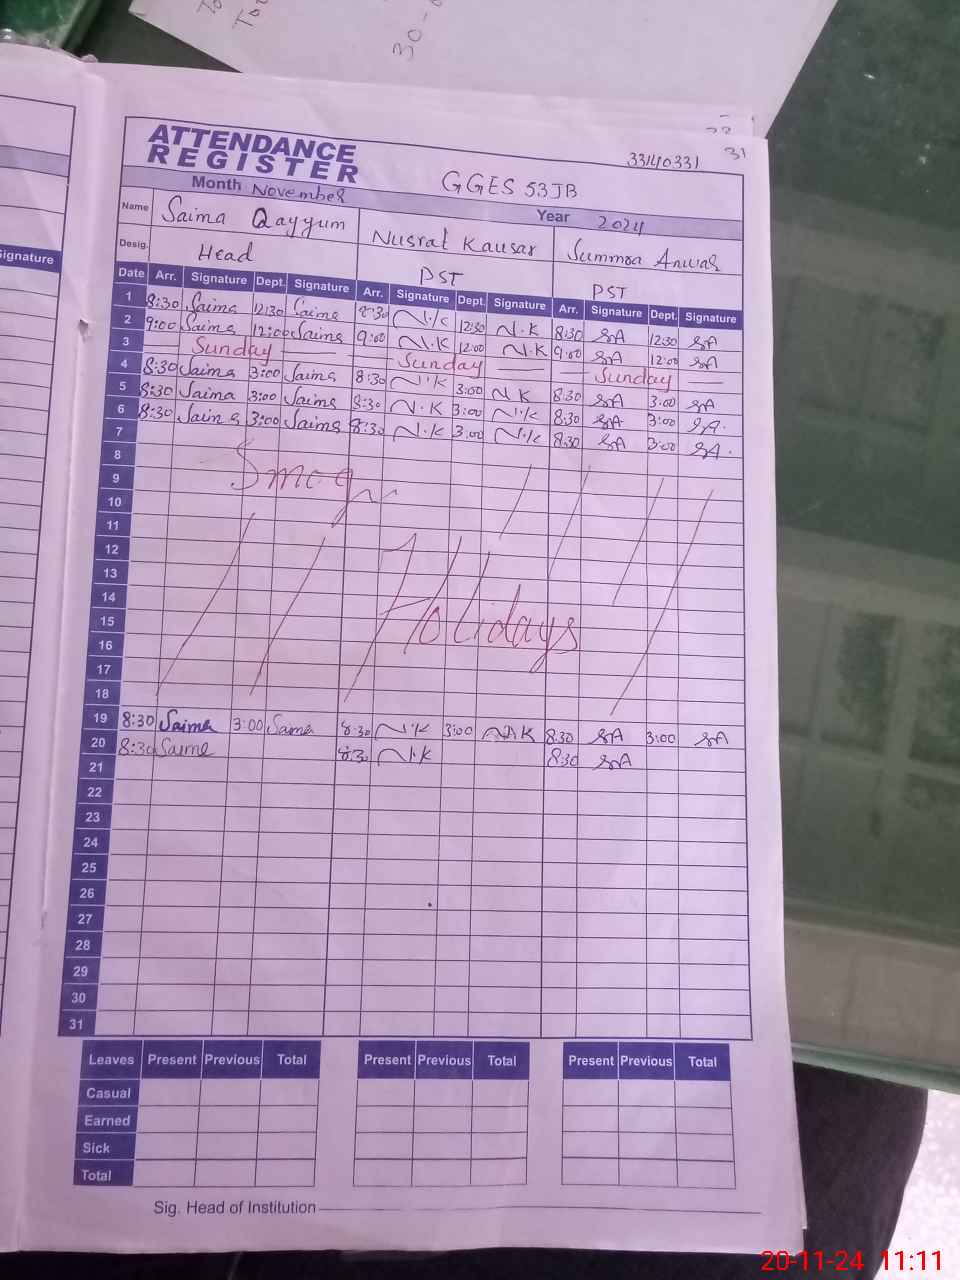 30-
31
33140331
ATTENDANCE
REGISTER
GGES 53JB
Month November Year 2024
Name Saima Qayyum Nusrat Kausar Summra Anwar
Desig. Head PST PST
Signature
Date Arr. Signature Dept. Signature Arr. Signature Dept. Signature Arr. Signature Dept. Signature
1 8:30 Saima 12:30 Saima 8:30 N.K 12:30 N.K 8:30 SA 12:30 SA
2 9:00 Saima 12:00 Saima 9:00 N.K 12:00 N.K 9:00 SA 12:00 SA
3 Sunday Sunday Sunday
4 8:30 Saima 3:00 Saima 8:30 N.K 3:00 N.K 8:30 SA 3:00 SA
5 8:30 Saima 3:00 Saima 8:30 N.K 3:00 N.K 8:30 SA 3:00 SA.
6 8:30 Saima 3:00 Saima 8:30 N.K 3:00 N.K 8:30 SA 3:00 SA.
7
8
9 Smog
10
11
12
13
14
15 Holidays
16
17
18
19 8:30 Saima 3:00 Saima 8:30 N.K 3:00 N.K 8:30 SA 3:00 SA
20 8:30 Saima 8:30 N.K 8:30 SA
21
22
23
24
25
26
27
28
29
30
31
Leaves Present Previous Total Present Previous Total Present Previous Total
Casual
Earned
Sick
Total
Sig. Head of Institution
20-11-24 11:11